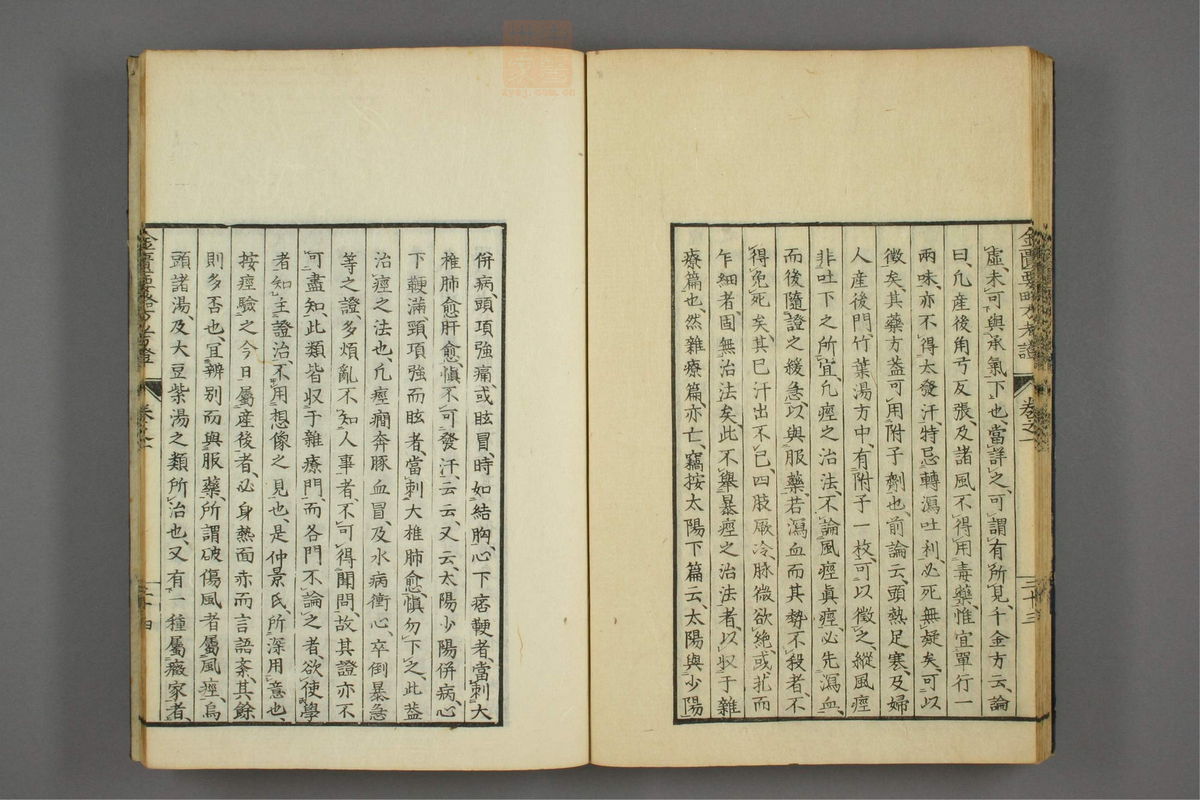 金匱要略方考證 卷之一 三十三
虛、未可與承氣下也、當詳之、可謂有所見、千金方云、論
曰、凡產後角弓反張、及諸風不得用毒藥、惟宜單行一
兩味、亦不得太發汗、特忌轉瀉吐利、必死無疑矣、可以
徵矣、其藥方蓋可用附子劑也、前論云、頭熱足寒、及婦
人產後門、竹葉湯方中、有附子一枚、可以徵之、縱風痙
非吐下之所宜、凡痙之治法、不論風痙眞痙、必先瀉血、
而後隨證之緩急、以與服藥、若瀉血而其勢不殺者、不
得免死矣、其已汗出不已、四肢厥冷、脉微欲絶、或扎而
乍細者、固無治法矣、此不擧暴痙之治法者、以収于雜
療篇也、然雜療篇亦亡、竊按太陽下篇云、太陽與少陽
併病、頭項強痛、或眩冒、時如結胸、心下痞鞕者、當刺大
椎肺愈肝愈、愼不可發汗、云云、又云、太陽少陽併病、心
下鞕滿、頸項強而眩者、當刺大椎肺愈、愼勿下之、此蓋
治痙之法也、凡痙癎奔豚血冒、及水病衝心、卒倒暴急
等之證、多煩亂不知人事者、不可得聞問、故其證亦不
可盡知、此類皆収于雜療門、而各門不論之者、欲使學
者知主證治、不用想像之見也、是仲景氏、所深用意也、
按痙驗之今日、屬產後者、必身熱面赤而言語紊、其餘
則多否也、宜辨别而與服藥、所謂破傷風者、屬風痙、烏
頭諸湯、及大豆紫湯之類所治也、又有一種屬癥家者、
金匱要略方考證 卷之一 三十四